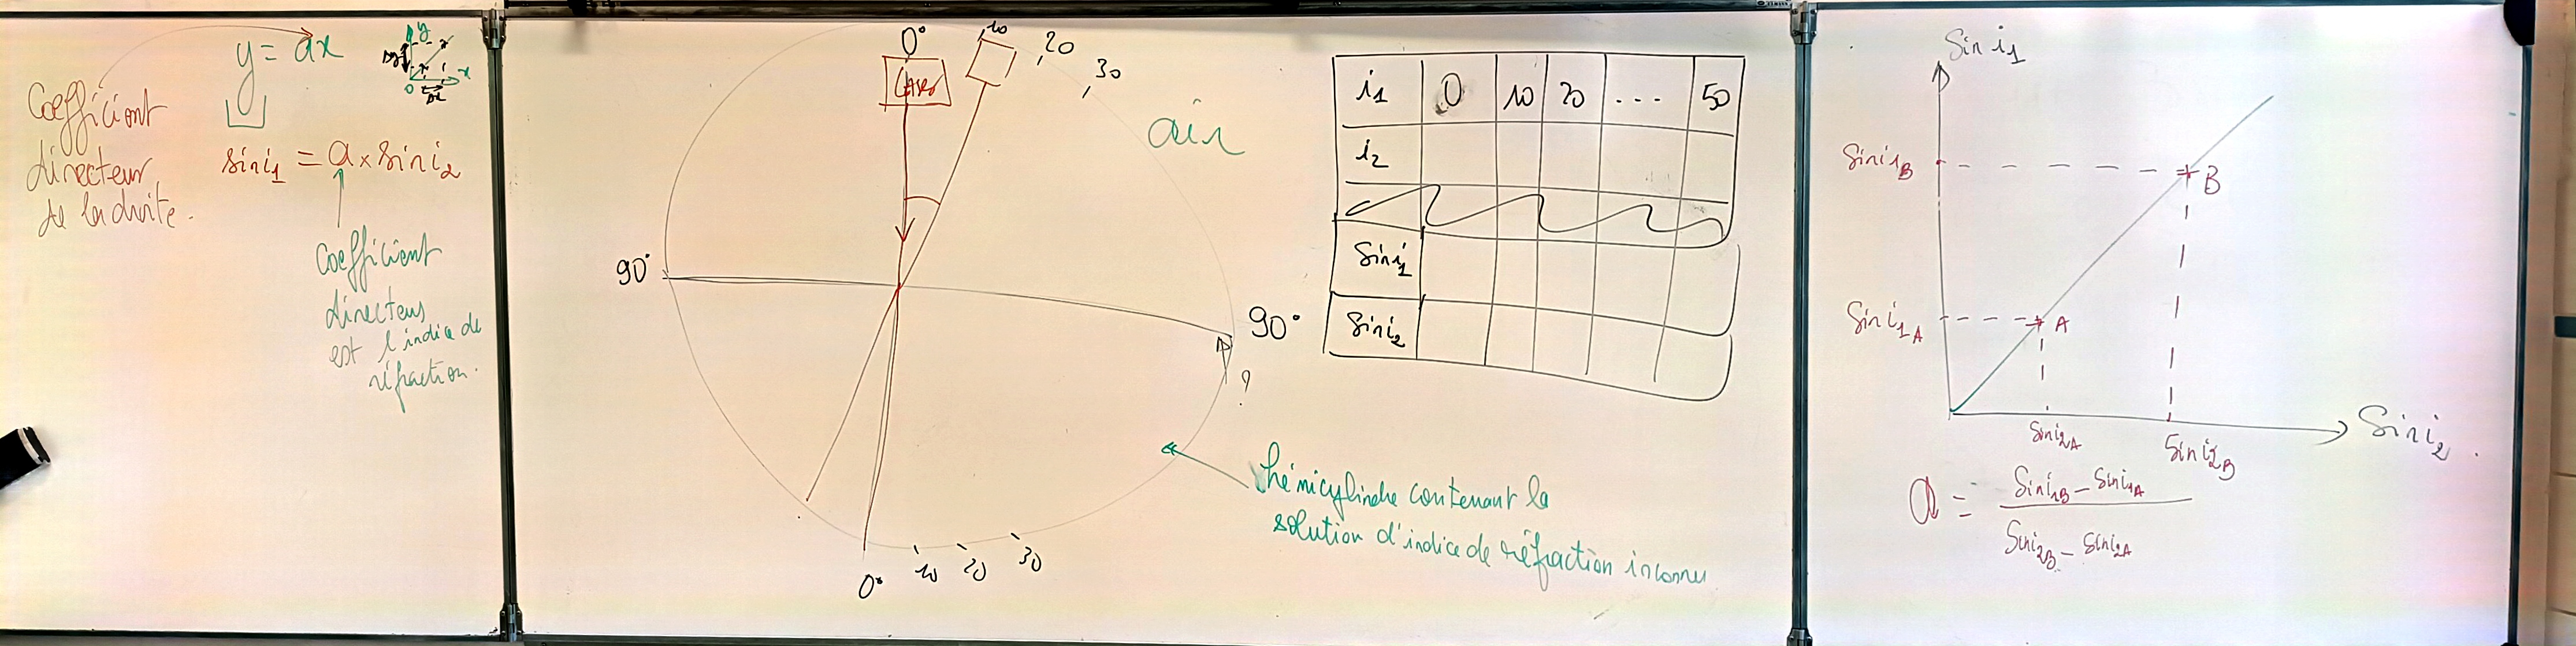 y = ax
y
x
0
Δy
Δx
Coefficient
directeur
de la droite.
sin i₁ = a × sin i₂
Coefficient
directeur
est l'indice de
réfraction.
0°
10
20
30
LASER
air
90°
90°
?
0°
10
20
30
hémicylindre contenant la
solution d'indice de réfraction inconnu
i₁ 0 10 20 ... 50
i₂
Sin i₁
Sin i₂
Sin i₁
Sin i₁B
B
Sin i₁A
A
Sin i₂A
Sin i₂B
Sin i₂
a = (Sin i₁B − Sin i₁A) / (Sin i₂B − Sin i₂A)